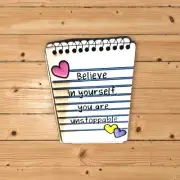 Believe
in yourself
you are
unstoppable